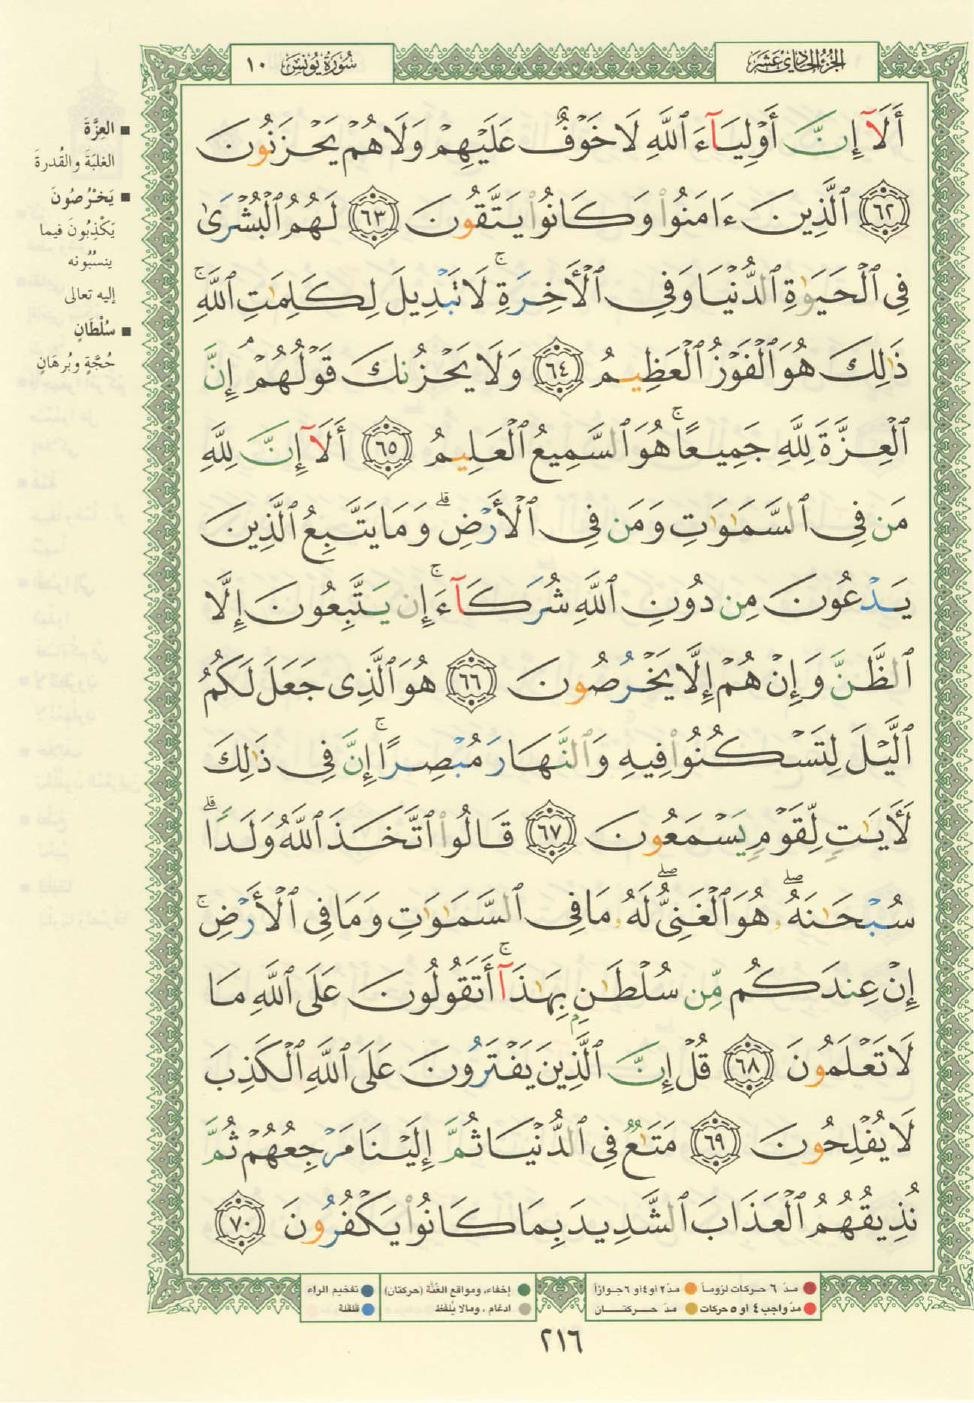 الجزء الحادي عشر
سورة يونس ١٠
أَلَآ إِنَّ أَوْلِيَآءَ ٱللَّهِ لَا خَوْفٌ عَلَيْهِمْ وَلَا هُمْ يَحْزَنُونَ
﴿٦٢﴾ ٱلَّذِينَ ءَامَنُوا۟ وَكَانُوا۟ يَتَّقُونَ ﴿٦٣﴾ لَهُمُ ٱلْبُشْرَىٰ
فِى ٱلْحَيَوٰةِ ٱلدُّنْيَا وَفِى ٱلْأَخِرَةِ ۚ لَا تَبْدِيلَ لِكَلِمَٰتِ ٱللَّهِ ۚ
ذَٰلِكَ هُوَ ٱلْفَوْزُ ٱلْعَظِيمُ ﴿٦٤﴾ وَلَا يَحْزُنكَ قَوْلُهُمْ ۘ إِنَّ
ٱلْعِزَّةَ لِلَّهِ جَمِيعًا ۚ هُوَ ٱلسَّمِيعُ ٱلْعَلِيمُ ﴿٦٥﴾ أَلَآ إِنَّ لِلَّهِ
مَن فِى ٱلسَّمَٰوَٰتِ وَمَن فِى ٱلْأَرْضِ ۗ وَمَا يَتَّبِعُ ٱلَّذِينَ
يَدْعُونَ مِن دُونِ ٱللَّهِ شُرَكَآءَ ۚ إِن يَتَّبِعُونَ إِلَّا
ٱلظَّنَّ وَإِنْ هُمْ إِلَّا يَخْرُصُونَ ﴿٦٦﴾ هُوَ ٱلَّذِى جَعَلَ لَكُمُ
ٱلَّيْلَ لِتَسْكُنُوا۟ فِيهِ وَٱلنَّهَارَ مُبْصِرًا ۚ إِنَّ فِى ذَٰلِكَ
لَأَيَٰتٍ لِّقَوْمٍ يَسْمَعُونَ ﴿٦٧﴾ قَالُوا۟ ٱتَّخَذَ ٱللَّهُ وَلَدًا ۗ
سُبْحَٰنَهُۥ ۖ هُوَ ٱلْغَنِىُّ ۖ لَهُۥ مَا فِى ٱلسَّمَٰوَٰتِ وَمَا فِى ٱلْأَرْضِ ۚ
إِنْ عِندَكُم مِّن سُلْطَٰنٍۭ بِهَٰذَآ ۚ أَتَقُولُونَ عَلَى ٱللَّهِ مَا
لَا تَعْلَمُونَ ﴿٦٨﴾ قُلْ إِنَّ ٱلَّذِينَ يَفْتَرُونَ عَلَى ٱللَّهِ ٱلْكَذِبَ
لَا يُفْلِحُونَ ﴿٦٩﴾ مَتَٰعٌ فِى ٱلدُّنْيَا ثُمَّ إِلَيْنَا مَرْجِعُهُمْ ثُمَّ
نُذِيقُهُمُ ٱلْعَذَابَ ٱلشَّدِيدَ بِمَا كَانُوا۟ يَكْفُرُونَ ﴿٧٠﴾
■ العِزَّةَ
الغلبَةَ والقُدرةَ
■ يَخْرُصُونَ
يَكْذِبُونَ فيما
ينسُبُونه
إليه تعالى
■ سُلْطَانٍ
حُجَّةٍ وبُرهَانٍ
مدّ ٦ حركات لزوماً ● مدّ ٢ أو ٤ أو ٦ جوازاً
مدّ واجب ٤ أو ٥ حركات ● مدّ حركتان
إخفاء، ومواقع الغُنَّة (حركتان)
ادغام ، ومالا يُلفَظ
تفخيم الراء
قلقلة
٢١٦